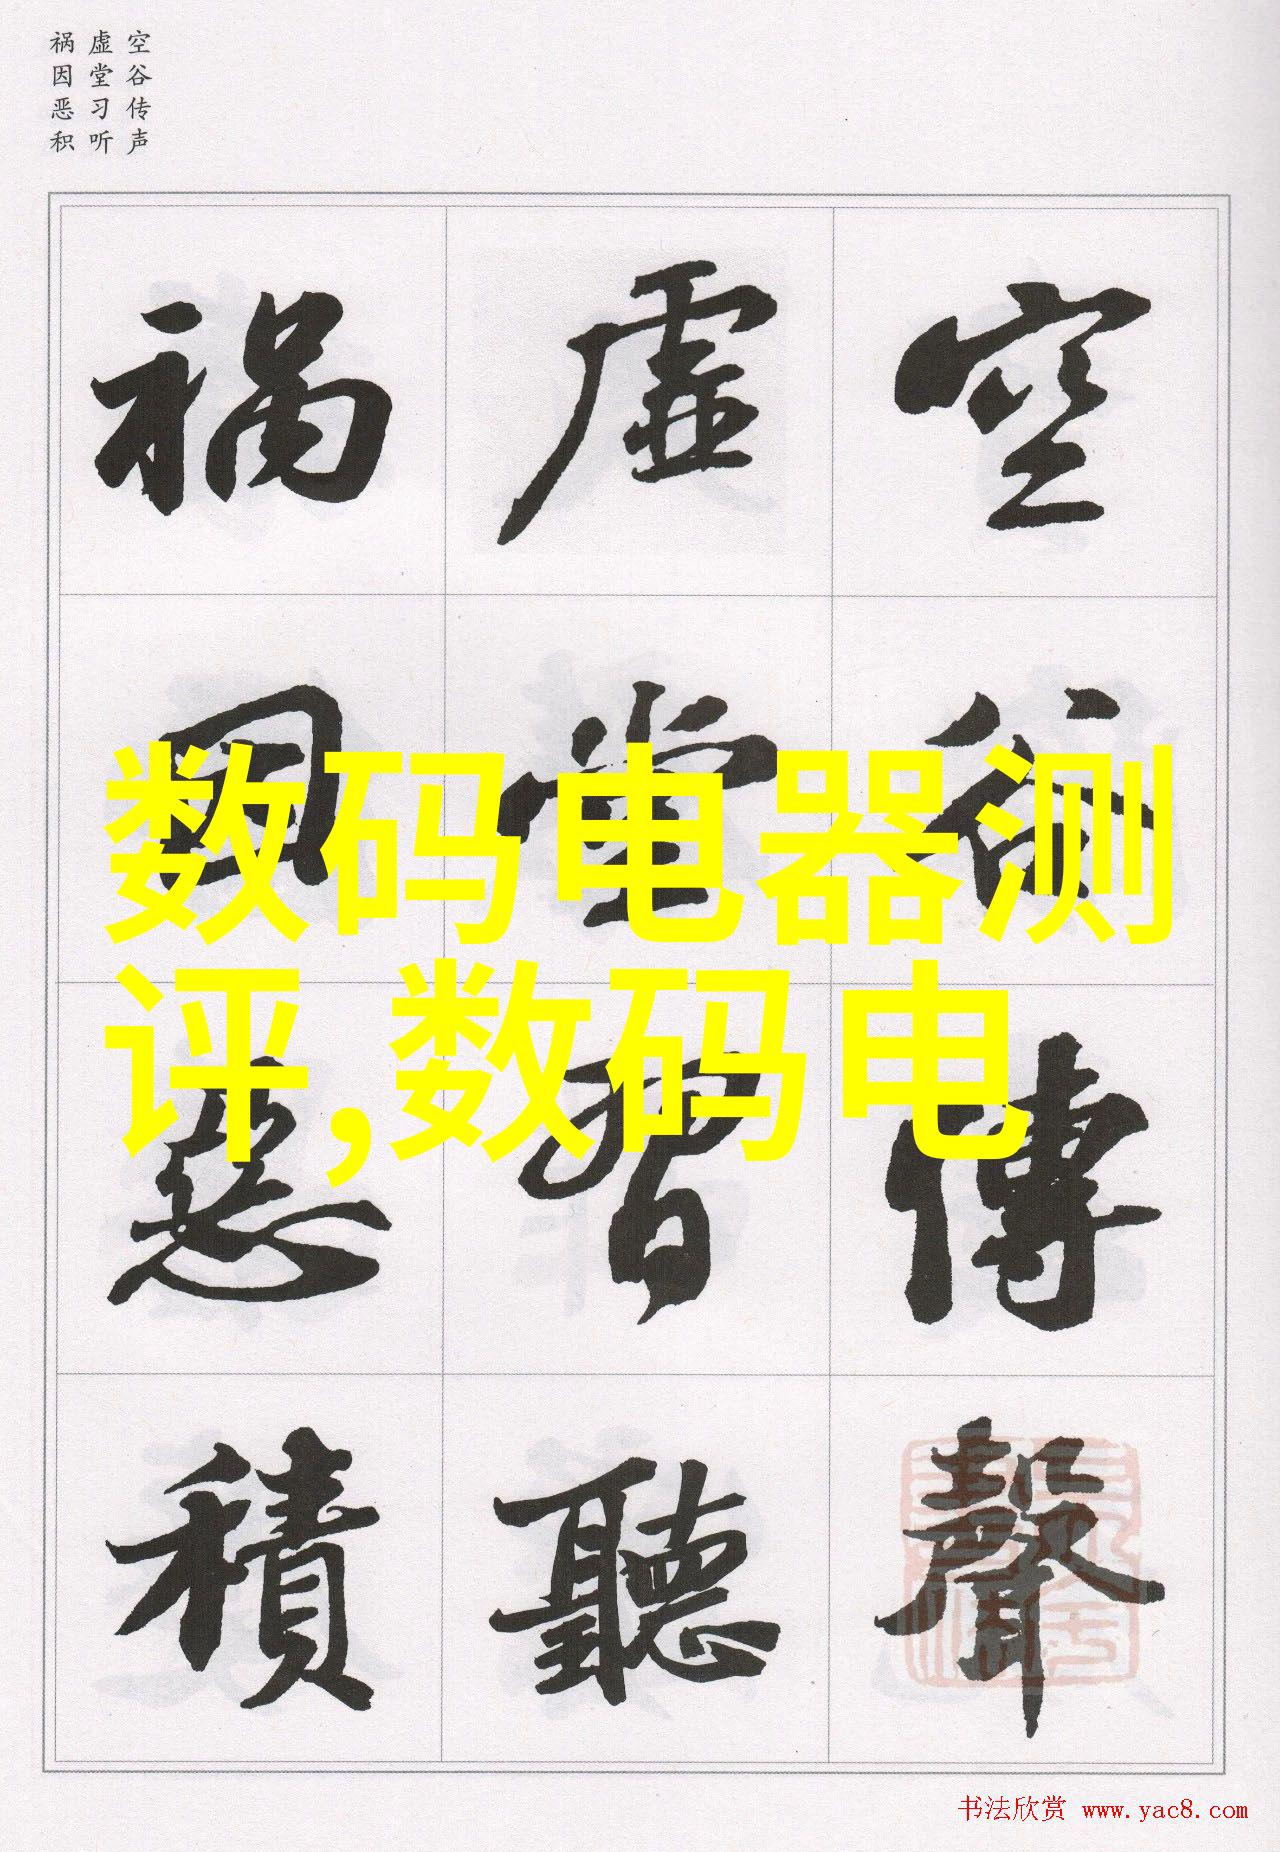 空谷传声
虚堂习听
祸因恶积
空谷傳聲
虚堂習聽
禍因惡積
数码电器测
评,数码电
书法欣赏 www.yac8.com